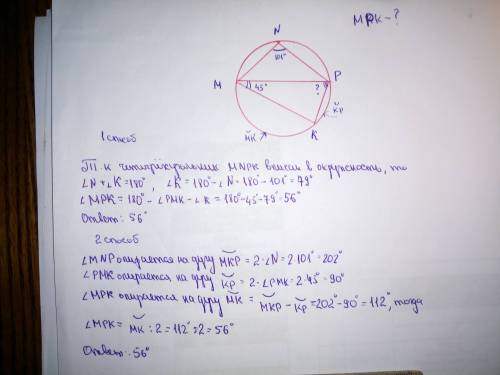 МРК-?
N
101°
M
45°
?
P
K͝P
K
M͝K
1 способ
Т.к четырёхугольник MNPK вписан в окружность, то
∠N+∠K=180°, ∠K=180°-∠N=180°-101°=79°
∠MPK=180°-∠PMK-∠K=180°-45°-79°=56°
Ответ: 56°
2 способ
∠MNP опирается на дугу M͝KP = 2·∠N=2·101°=202°
∠PMK опирается на дугу K͝P = 2·∠PMK=2·45°=90°
∠MPK опирается на дугу M͝K = M͝KP - K͝P=202°-90°=112°, тогда
∠MPK= M͝K:2=112°:2=56°
Ответ: 56°